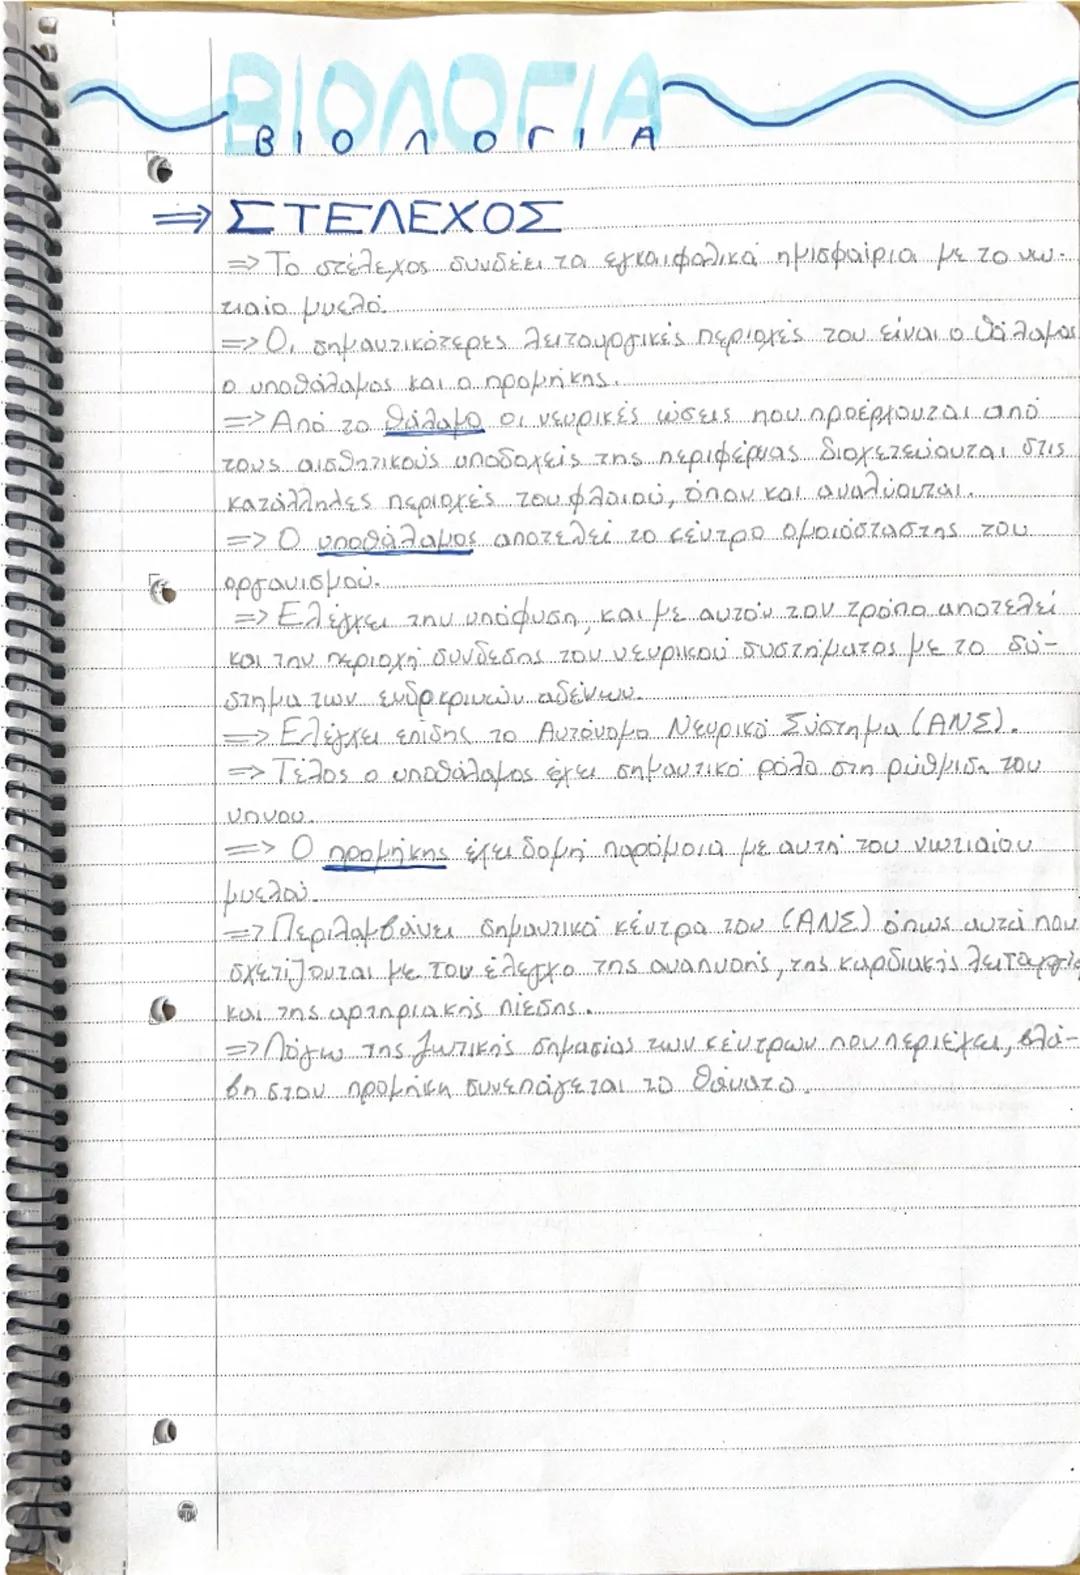 ΒΙΟΛΟΓΙΑ
ΒΙΟΛΟΓΙΑ
⇒ ΣΤΕΛΕΧΟΣ
=> Το στέλεχος συνδέει τα εγκαιφαλικά ημισφαίρια με το νω-
τιαίο μυελό.
=> Οι σημαντικότερες λειτουργικές περιοχές του είναι ο θάλαμος
ο υποθάλαμος και ο προμήκης.
=> Από το θάλαμο οι νευρικές ώσεις που προέρχονται από
τους αισθητικούς υποδοχείς της περιφέρειας διοχετεύονται στις
κατάλληλες περιοχές του φλοιού, όπου και αναλύονται.
=> Ο υποθάλαμος αποτελεί το κέντρο ομοιόστασης του
οργανισμού.
=> Ελέγχει την υπόφυση, και με αυτόν τον τρόπο αποτελεί
και την περιοχή σύνδεσης του νευρικού συστήματος με το σύ-
στημα των ενδοκρινών αδένων.
=> Ελέγχει επίσης το Αυτόνομο Νευρικό Σύστημα (ΑΝΣ).
=> Τέλος ο υποθάλαμος έχει σημαντικό ρόλο στη ρύθμιση του
υπνου.
=> Ο προμήκης έχει δομή παρόμοια με αυτή του νωτιαίου
μυελού.
=> Περιλαμβάνει σημαντικά κέντρα του (ΑΝΣ) όπως αυτά που
σχετίζονται με τον έλεγχο της αναπνοής, της καρδιακής λειτουργίας
και της αρτηριακής πίεσης.
=> Λόγω της ζωτικής σημασίας των κέντρων που περιέχει, βλά-
βη στον προμήκη συνεπάγεται το θάνατο.